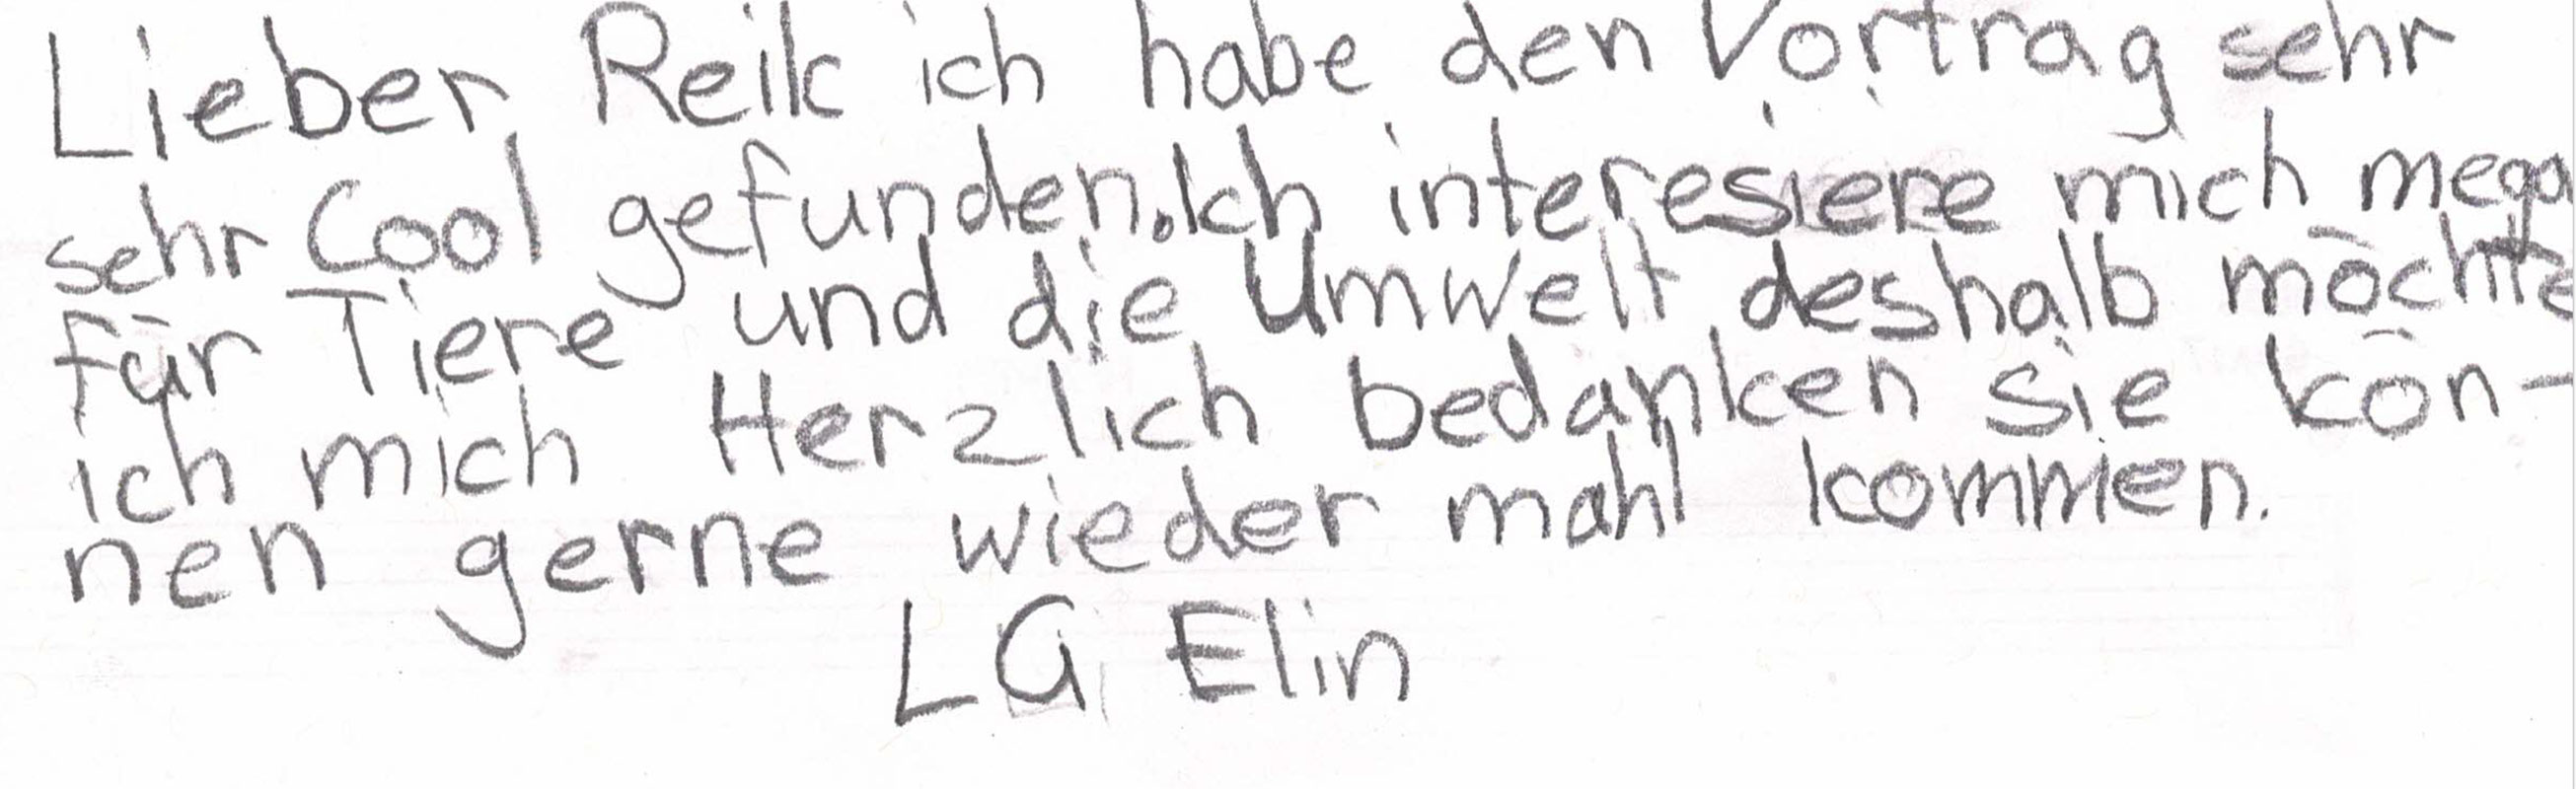 Lieber Reik ich habe den Vortrag sehr
sehr Cool gefunden. Ich interesiere mich mega
für Tiere und die Umwelt deshalb möchte
ich mich Herzlich bedanken sie kön-
nen gerne wieder mahl kommen.
LG Elin